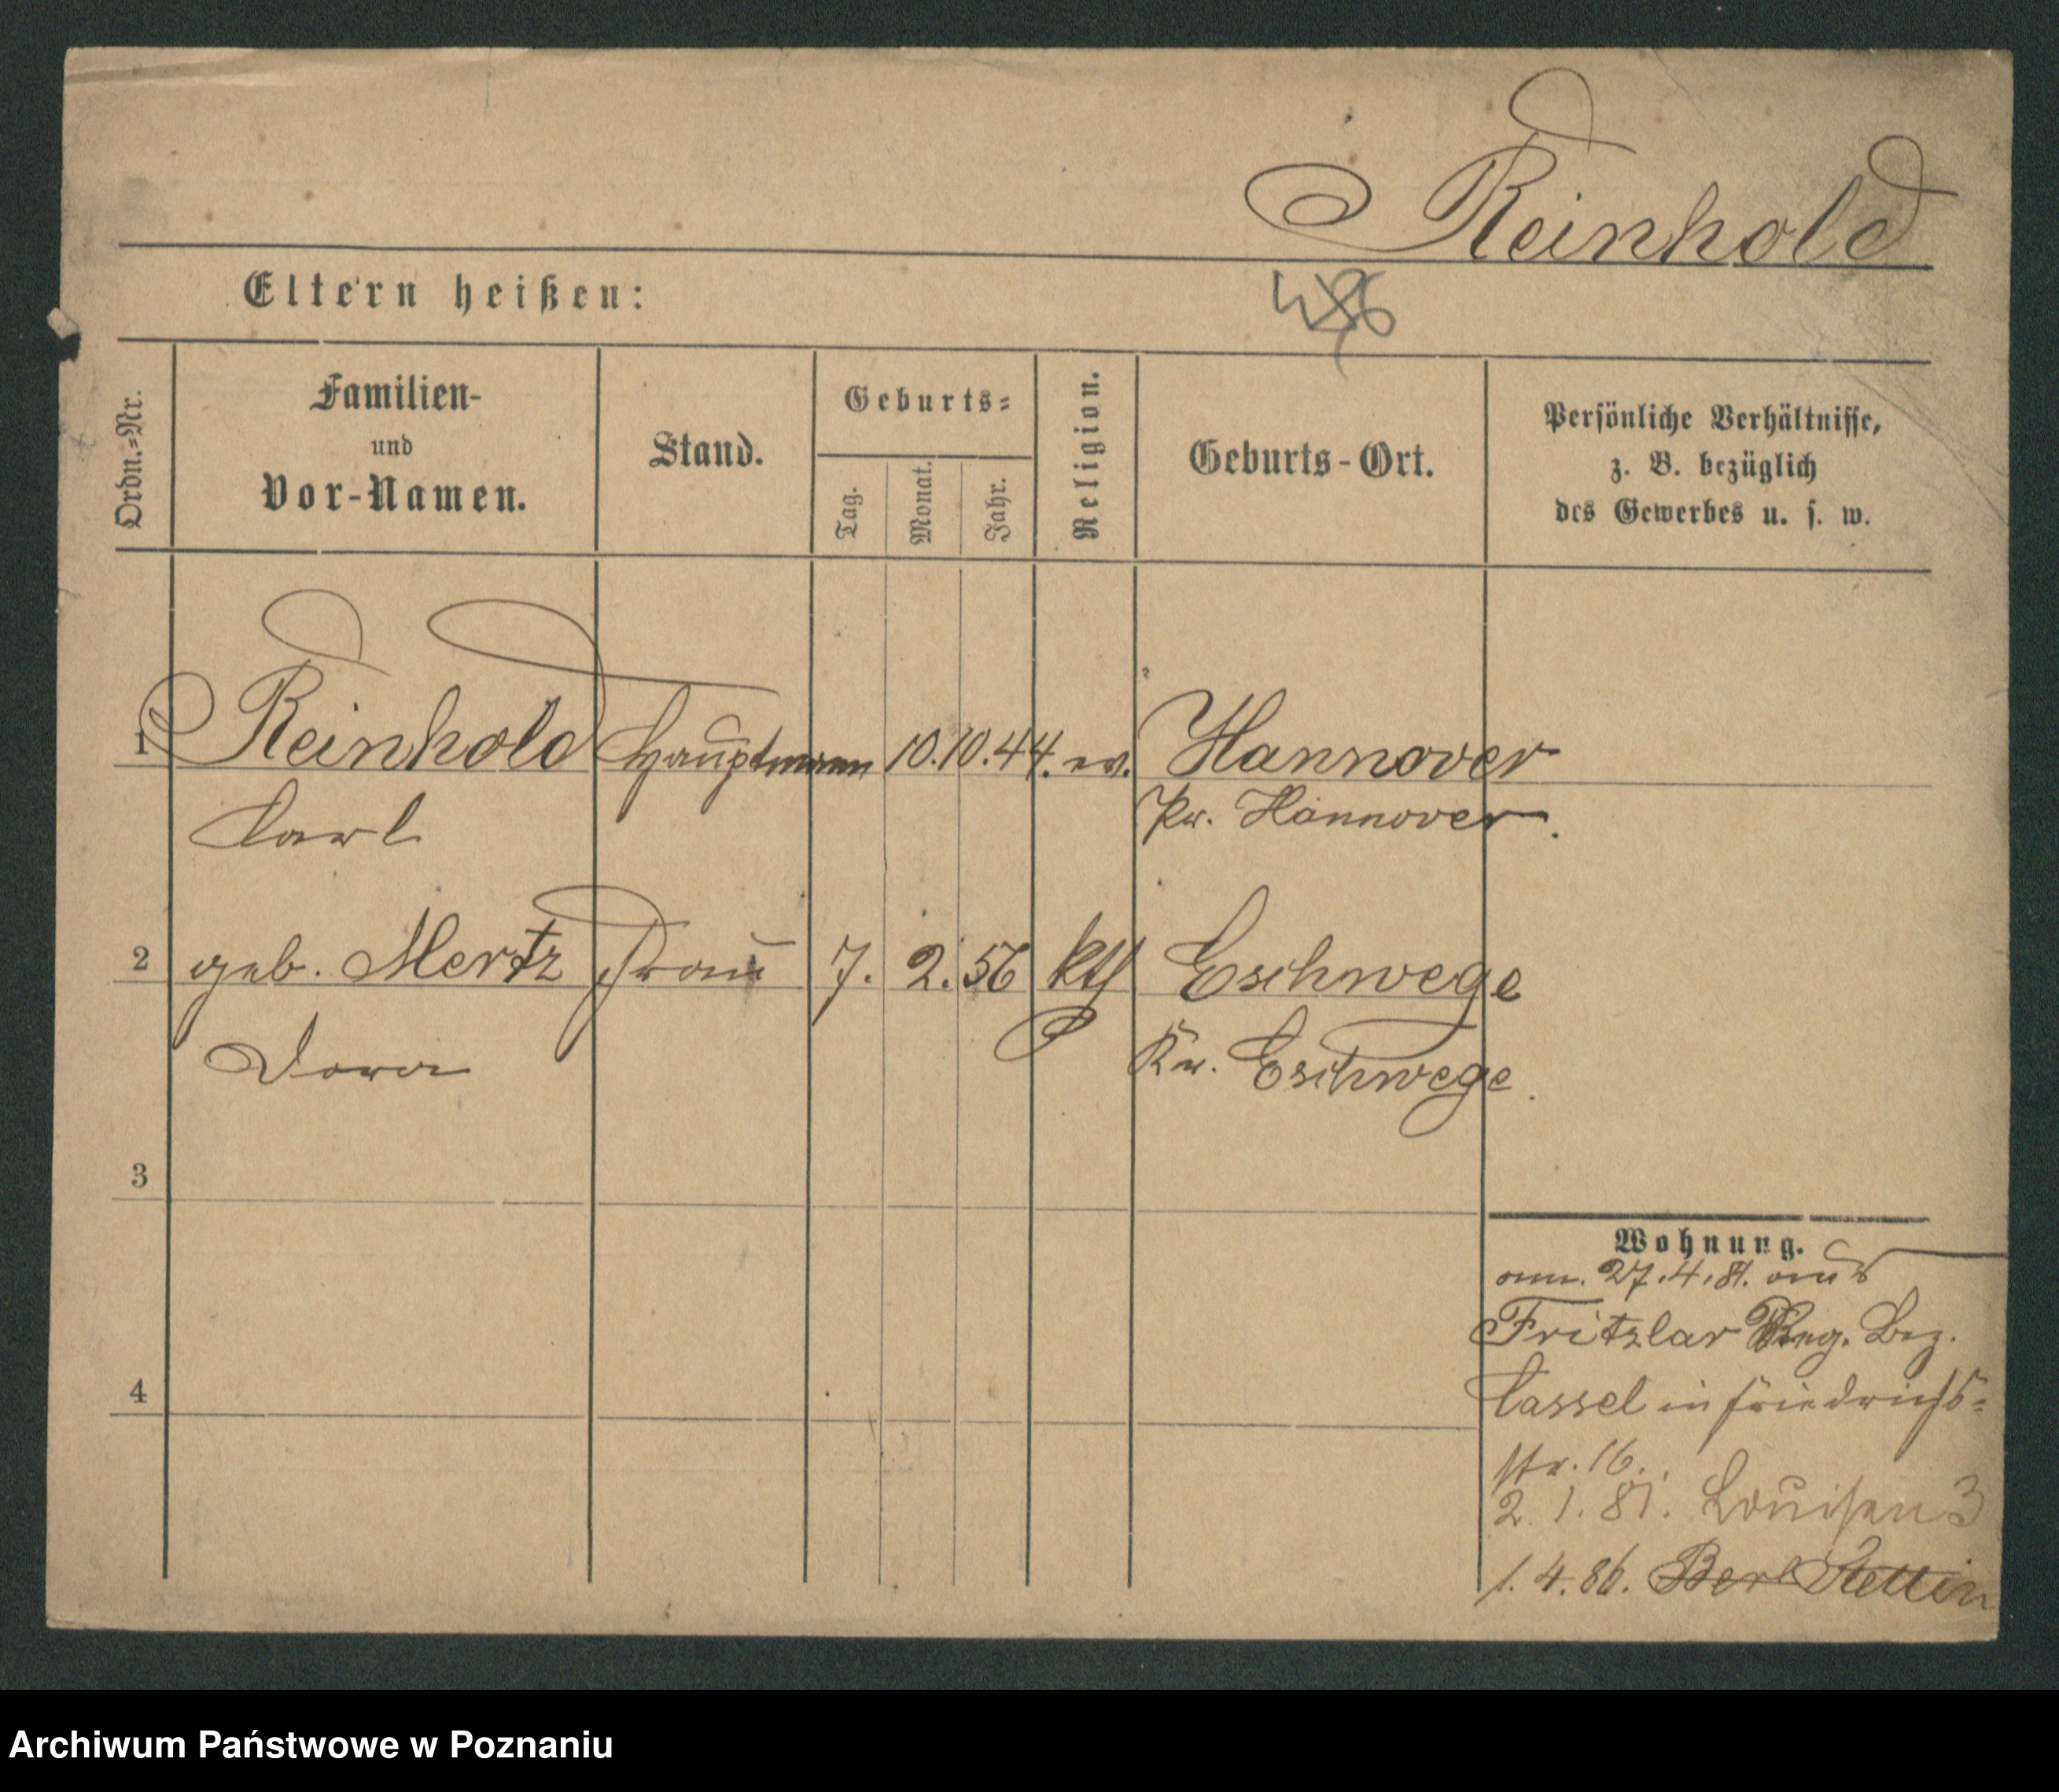 Reinhold
Eltern heißen:
Ordn.=Nr.
Familien-
und
Vor-Namen.
Stand.
Geburts=
Tag.
Monat.
Jahr.
Religion.
Geburts-Ort.
Persönliche Verhältnisse,
z. B. bezüglich
des Gewerbes u. s. w.
1 Reinhold Hauptmann 10. 10. 44. ev. Hannover
Carl Pr. Hannover.
2 geb. Mertz Frau 7. 2. 56 kth Eschwege
Dora Kr. Eschwege.
3
4
Wohnung.
27.4.81. aus
Fritzlar Reg. Bez.
Cassel in Friedrichs=
str. 16.
2. 1. 81. Louisen 3
1. 4. 86. Stettin
Archiwum Państwowe w Poznaniu